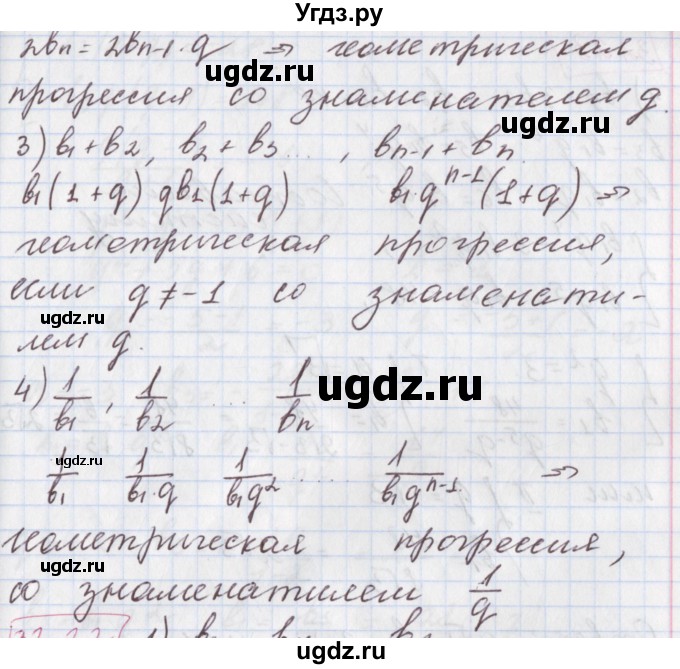 Угдз.ру
2bn = 2bn-1·q => геометрическая
ugdz.ru
прогрессия со знаменателем q.
ugdz.ru
3) b1 + b2, b2 + b3 ... , bn-1 + bn
b1(1+q) qb1(1+q) b1·q^n-1(1+q) =>
геометрическая прогрессия,
если q ≠ -1 со знаменати-
ugdz.ru
лем q.
4) 1/b1, 1/b2 ... 1/bn
ugdz.ru
ugdz.ru
1/b1 1/b1·q 1/b1q^2 ... 1/b1q^n-1 =>
геометрическая прогрессия,
ugdz.ru
со знаменатилем 1/q
ugdz.ru